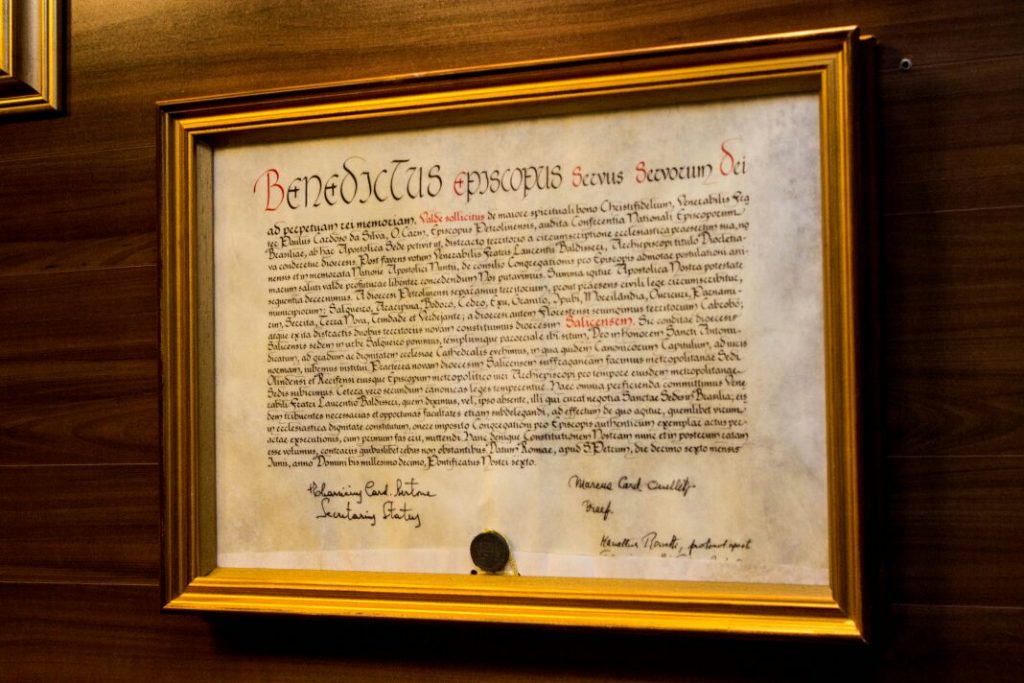 BENEDICTUS EPISCOPUS Servus Servorum Dei
ad perpetuam rei memoriam. Valde sollicitus de maiore spirituali bono Christifidelium, Venerabilis Fra
ter Paulus Cardoso da Silva, O. Carm., Episcopus Petrolinensis, audita Conferentia Nationali Episcoporum
Brasiliae, ab hac Apostolica Sede petivit ut, distracto territorio a circumscriptione ecclesiastica praesertim sua, no
va conderetur dioecesis. Post favens votum Venerabilis Fratris Laurentii Baldisseri, Archiepiscopi titulo Diocletia-
nensis et in memorata Natione Apostolici Nuntii, de consilio Congregationis pro Episcopis admotae postulationi ani-
marum saluti valde profuturae libenter concedendum Nos putavimus. Summa igitur Apostolica Nostra potestate
sequentia decernimus. A dioecesi Petrolinensi separamus territorium, prout praesens civili lege circumscribitur,
municipiorum: Salgueiro, Araripina, Bodocó, Cedro, Exu, Granito, Ipubi, Moreilândia, Ouricuri, Parnami-
rim, Serrita, Terra Nova, Trindade et Verdejante; a dioecesi autem Florestensi seiungimus territorium Cabrobó;
atque ex ita distractis duobus territoriis novam constituimus dioecesim Salicensem. Sic conditae dioecesis
Salicensis sedem in urbe Salgueiro ponimus, templumque paroeciale ibi situm, Deo in honorem Sancti Antonii
dicatum, ad gradum ac dignitatem ecclesiae Cathedralis evehimus, in qua quidem Canonicorum Capitulum, ad iuris
normam, iubemus institui. Praeterea novam dioecesim Salicensem suffraganeam facimus metropolitanae Sedi
Olindensi et Recifensi eiusque Episcopum metropolitico iuri Archiepiscopi pro tempore eiusdem metropolitanae
Sedis subicimus. Cetera vero secundum canonicas leges temperentur. Haec omnia perficienda committimus Vene
rabili Fratri Laurentio Baldisseri, quem diximus, vel, ipso absente, illi qui curat negotia Sanctae Sedis in Brasilia; eis
dem tribuentes necessarias et opportunas facultates etiam subdelegandi, ad effectum de quo agitur, quemlibet virum
in ecclesiastica dignitate constitutum, onere imposito Congregationi pro Episcopis authenticum exemplar actus per-
actae exsecutionis, cum primum fas erit, mittendi. Hanc denique Constitutionem Nostram nunc et in posterum ratam
esse volumus, contrariis quibuslibet rebus non obstantibus. Datum Romae, apud S. Petrum, die decimo sexto mensis
Iunii, anno Domini bis millesimo decimo, Pontificatus Nostri sexto.
Tharsicius Card. Bertone
Secretarius Status
Marcus Card. Ouellet
Praef.
Marcellus Rossetti, protonot. apost.